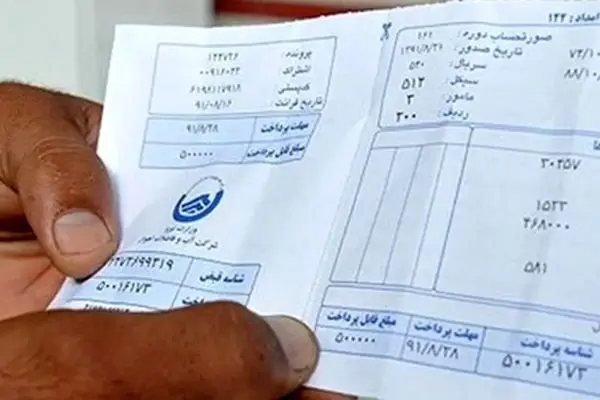 اعداد : ۱۲۲
صورتحساب دوره : ۱۶۱
تاریخ صدور : ۱۳۹۱/۸/۲۱
سریال : ۵۴۰
سیکل : ۵۱۲
مامور : ۳
ردیف : ۳۰۰
۷۴/۱۰
۸۸/۱۰
پرونده : ۱۲۲۷۲۶
اشتراک :
کدپستی :
تاریخ قرائت : ۹۱/۰۸/۱۶
مهلت پرداخت ۹۱/۸/۲۸
مبلغ قابل پرداخت ۵۰۰۰۰۰
وزارت نیرو
شرکت آب و فاضلاب اهواز
شناسه قبض
۵۰۰۱۶۱۷۳
۳۰۲۵۷
۱۵۲۳
۴۶۸۰۰۰
۵۸۱
شناسه پرداخت مهلت پرداخت مبلغ قابل پرداخت
۵۰۰۱۶۱۷۳ ۹۱/۸/۲۸ ۵۰۰۰۰۰